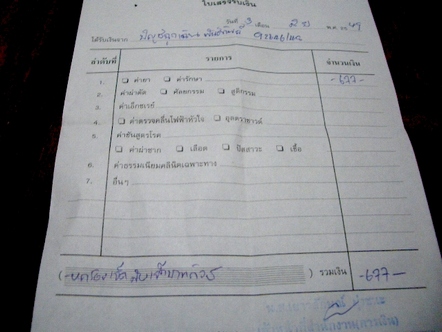 ใบเสร็จรับเงิน
วันที่ 3 เดือน พ.ศ.
ได้รับเงินจาก
ลำดับที่ รายการ จำนวนเงิน
1. ☐ ค่ายา ☐ ค่ารักษา -677-
2. ค่าผ่าตัด ☐ ศัลยกรรม ☐ สูติกรรม
3. ค่าเอ็กซเรย์
4. ☐ ค่าตรวจคลื่นไฟฟ้าหัวใจ ☐ อุลตราซาวด์
5. ค่าชันสูตรโรค
☐ ค่าผ่าซาก ☐ เลือด ☐ ปัสสาวะ ☐ เชื้อ
6. ค่าธรรมเนียมคลินิคเฉพาะทาง
7. อื่นๆ
(-หกร้อยเจ็ดสิบเจ็ดบาทถ้วน) รวมเงิน -677-